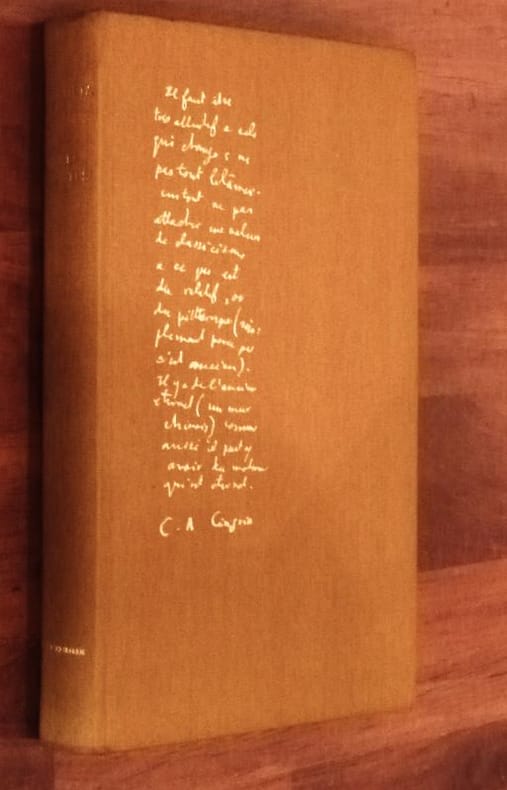 Il faut être
très attentif a cela
qui change & ne
pas tout
surtout ne pas
attacher une valeur
de classicisme
a ce qui est
du relatif, ou
du pittoresque (sim-
plement parce que
c'est ancien).
Il y a de l'ancien
éternel (un mur
chinois) comme
aussi il peut y
avoir du moderne
qui est éternel.
C. A Cingria